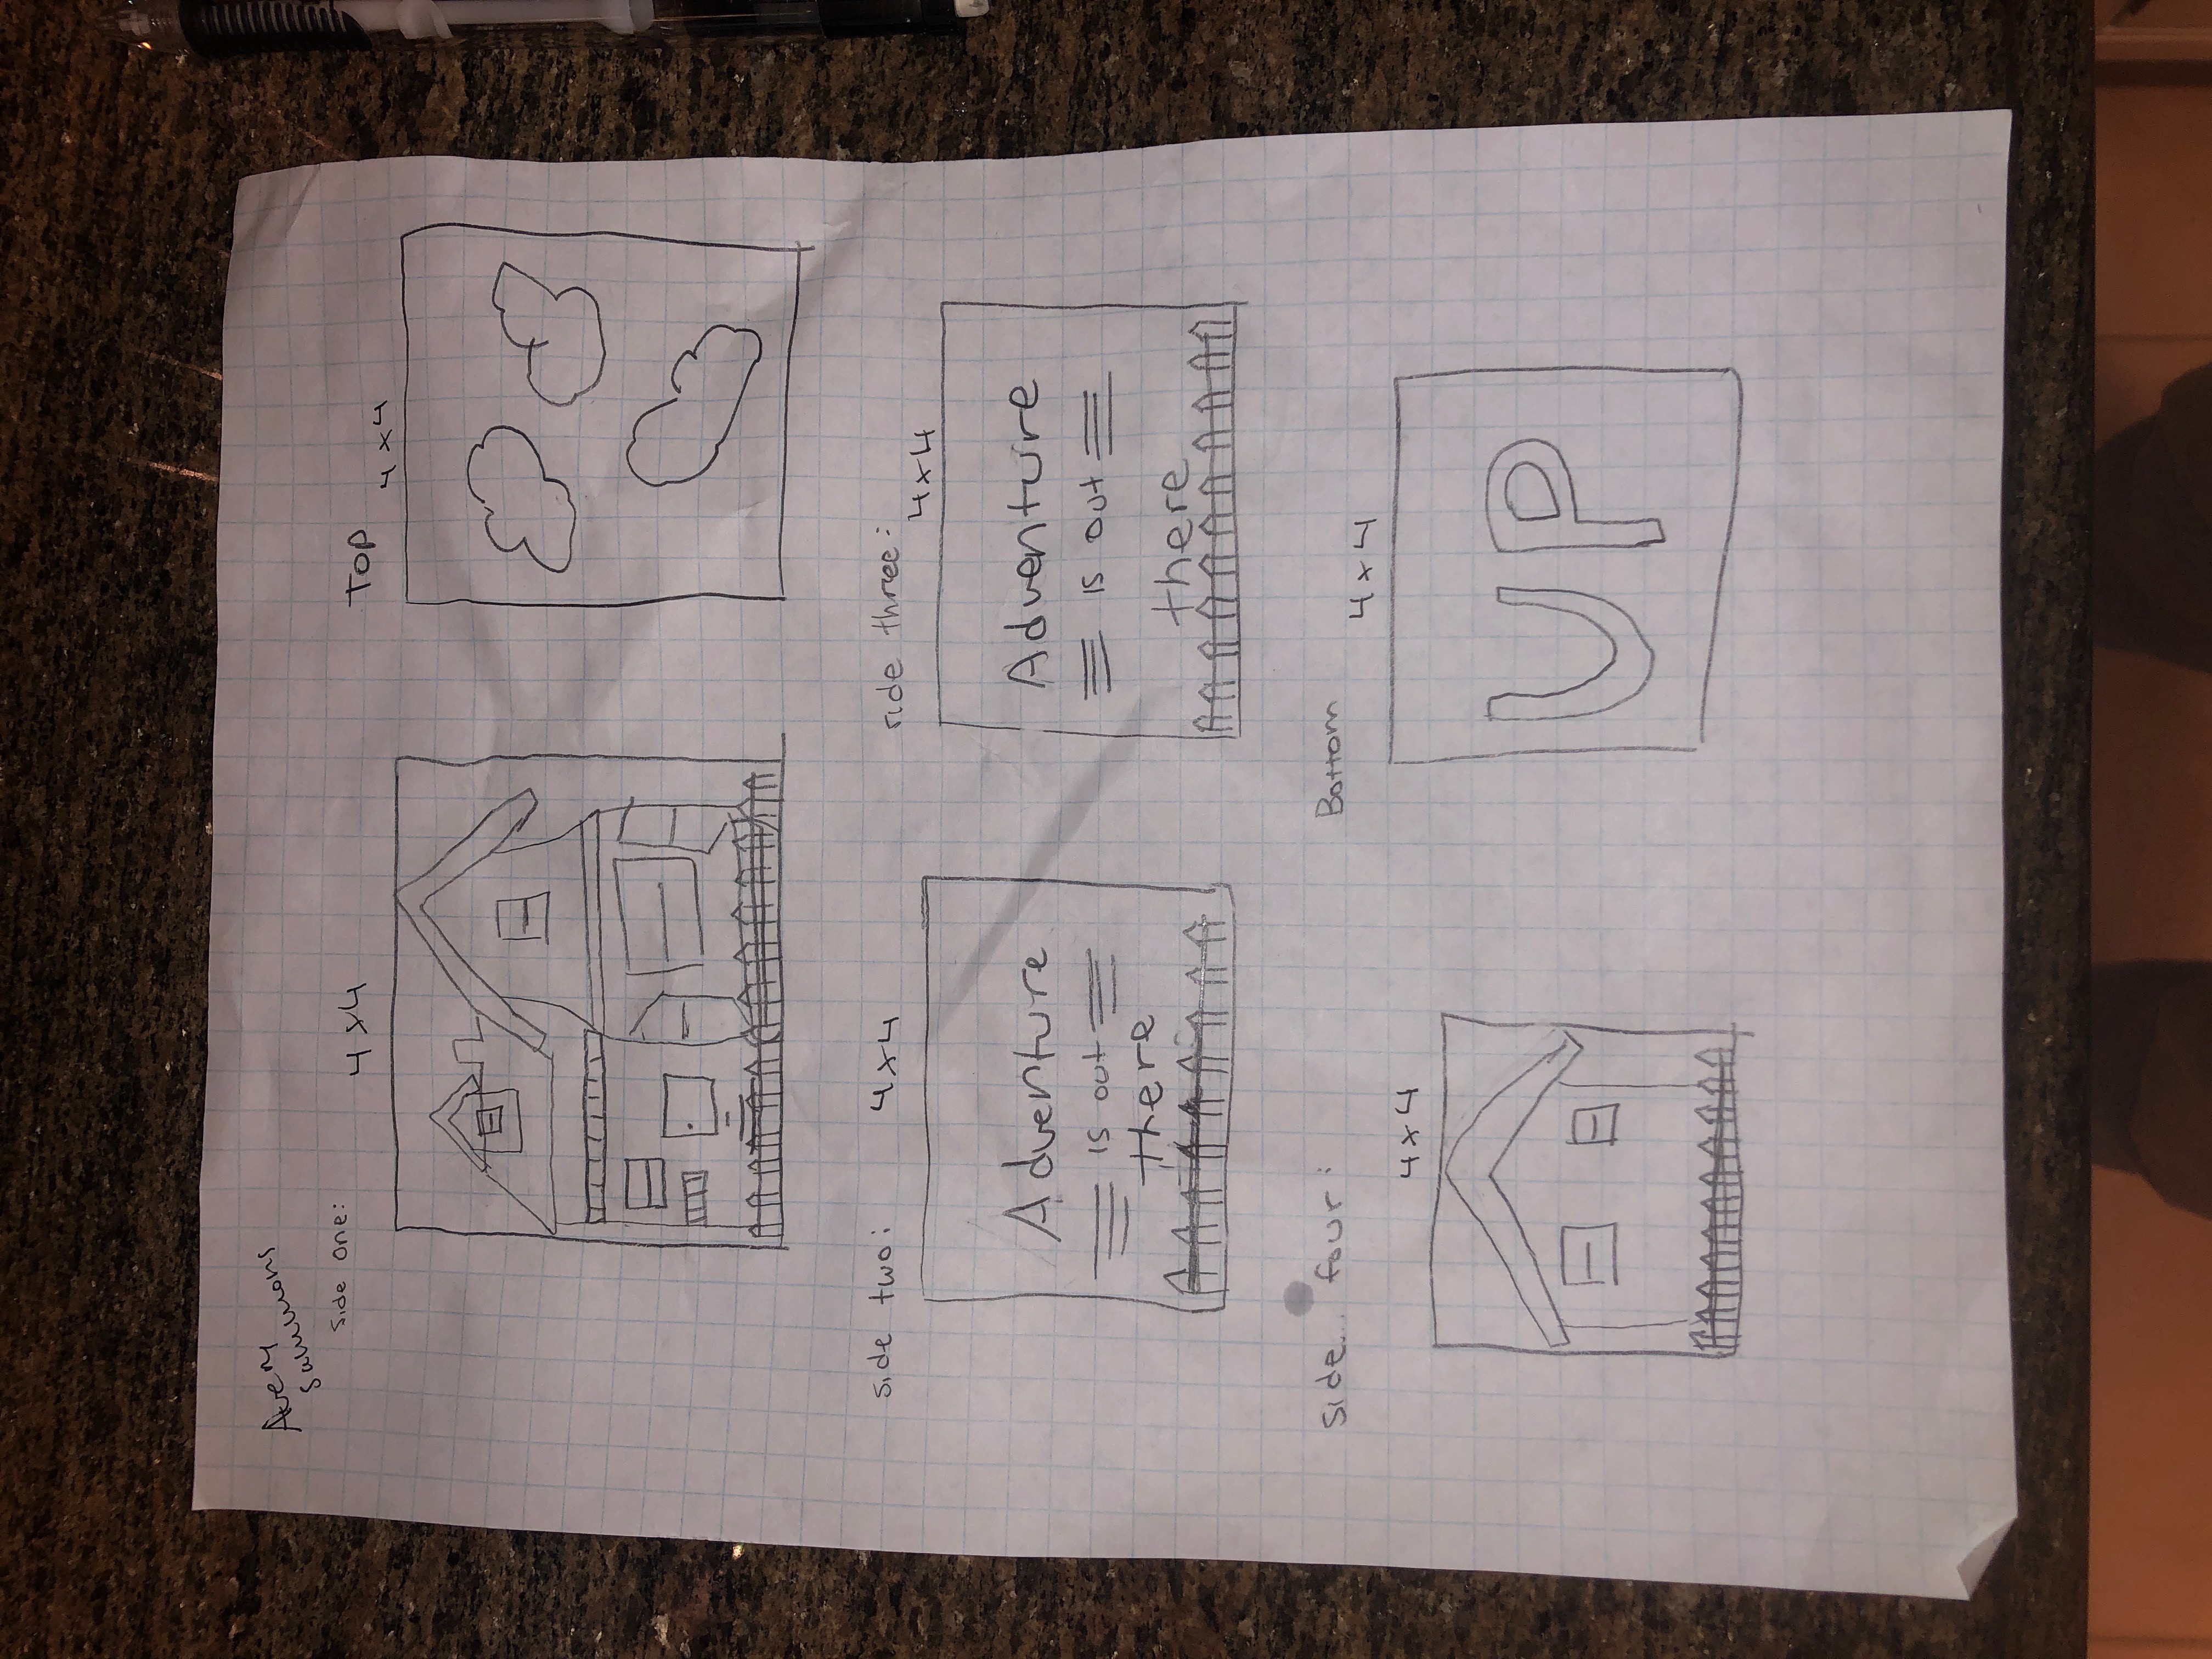 Avery
Sammons
Side One:
4x4
TOP
4x4
side two:
4x4
Adventure
is out
there
side three:
4x4
Adventure
is out
there
side... four:
4x4
Bottom
4x4
UP